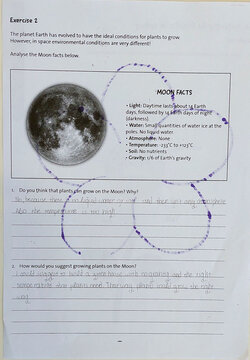 Exercise 2
The planet Earth has evolved to have the ideal conditions for plants to grow
However, in space environmental conditions are very different!
Analyse the Moon facts below.
MOON FACTS
• Light: Daytime lasts about 14 Earth
days, followed by 14 Earth days of night
(darkness).
• Water: Small quantities of water ice at the
poles. No liquid water.
• Atmosphere: None
• Temperature: -233°C to +123°C
• Soil: No nutrients
• Gravity: 1/6 of Earth's gravity
1. Do you think that plants can grow on the Moon? Why?
No because there is no liquid water or and there isn't any atmosphere
Also the temperature is too high
2. How would you suggest growing plants on the Moon?
I would suggest to build a greenhouse with and the right
temperature that plants need. This way plants would grow the right
way